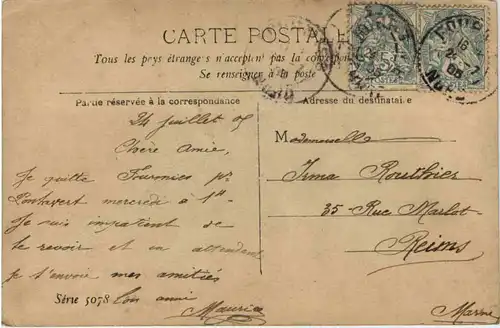 CARTE POSTALE
Tous les pays étrangers n'acceptent pas la correspon
Se renseigner à la poste
Partie réservée à la correspondance
Adresse du destinataire
24 juillet 05
Chère Amie,
Je quitte Tournies pr
Pontavert mercredi à 1h
Je suis impatient de
te revoir et en attendant
je t'envoie mes amitiés
Ton ami
Maurice
Mademoiselle
Irma Routhier
35 Rue Marlot
Reims
Marne
Série 5078